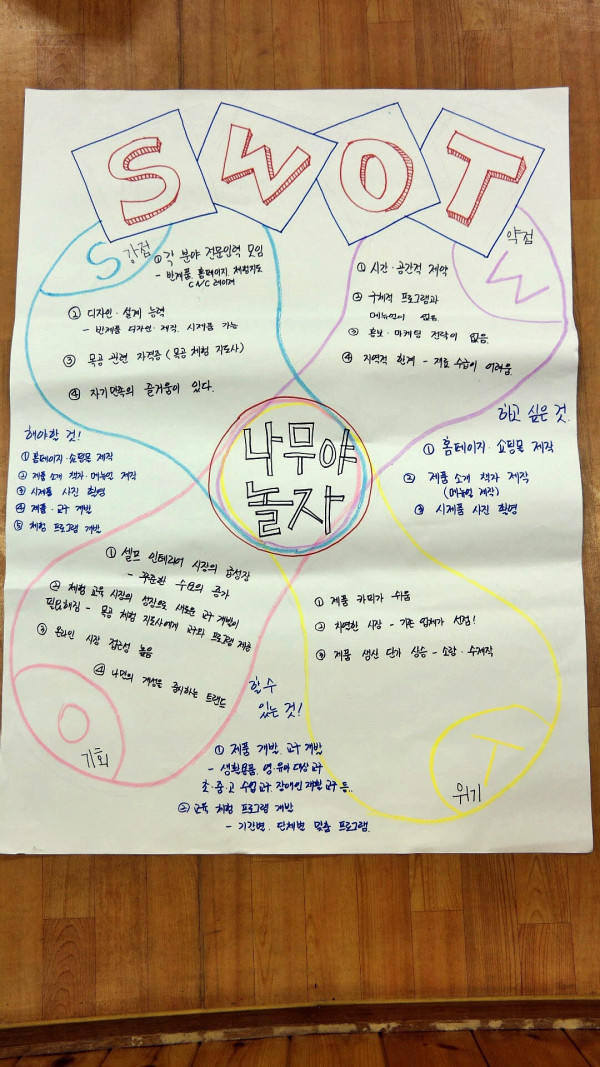 SWOT
S
강점
① 각 분야 전문인력 모임
- 반제품, 홈페이지, 체험지도
CNC 레이저
② 디자인·설계 능력
- 반제품 디자인·제작, 시제품 가능
③ 목공 관련 자격증 (목공 체험 지도사)
④ 자기만족의 즐거움이 있다.
W
약점
① 시간·공간적 제약
② 구체적 프로그램과
메뉴얼이 없음
③ 홍보·마케팅 전략이 없음
④ 지역적 한계 - 재료 수급이 어려움
해야할 것!
① 홈페이지·쇼핑몰 제작
② 제품 소개 책자·메뉴얼 제작
③ 시제품 사진 촬영
④ 제품·교구 개발
⑤ 체험 프로그램 개발
나무야
놀자
하고 싶은 것.
① 홈페이지·쇼핑몰 제작
② 제품 소개 책자 제작
(메뉴얼 제작)
③ 시제품 사진 촬영
① 셀프 인테리어 시장의 급성장
- 꾸준한 수요의 증가
② 체험 교육 시장의 성장으로 새로운 교구 개발이
필요해짐 - 목공 체험 지도사에게 교구와 프로그램 제공
③ 온라인 시장 접근성 높음
④ 나만의 개성을 중시하는 트랜드
O
기회
① 제품 카피가 쉬움
② 치열한 시장 - 기존 업체가 선점!
③ 제품 생산 단가 상승 - 소량·수제작
T
위기
할 수
있는 것!
① 제품 개발, 교구 개발
- 생활용품, 영·유아 대상 교구
초·중·고 수업교구, 장애인 재활 교구 등..
② 교육 체험 프로그램 개발
- 기간별, 단체별 맞춤 프로그램.